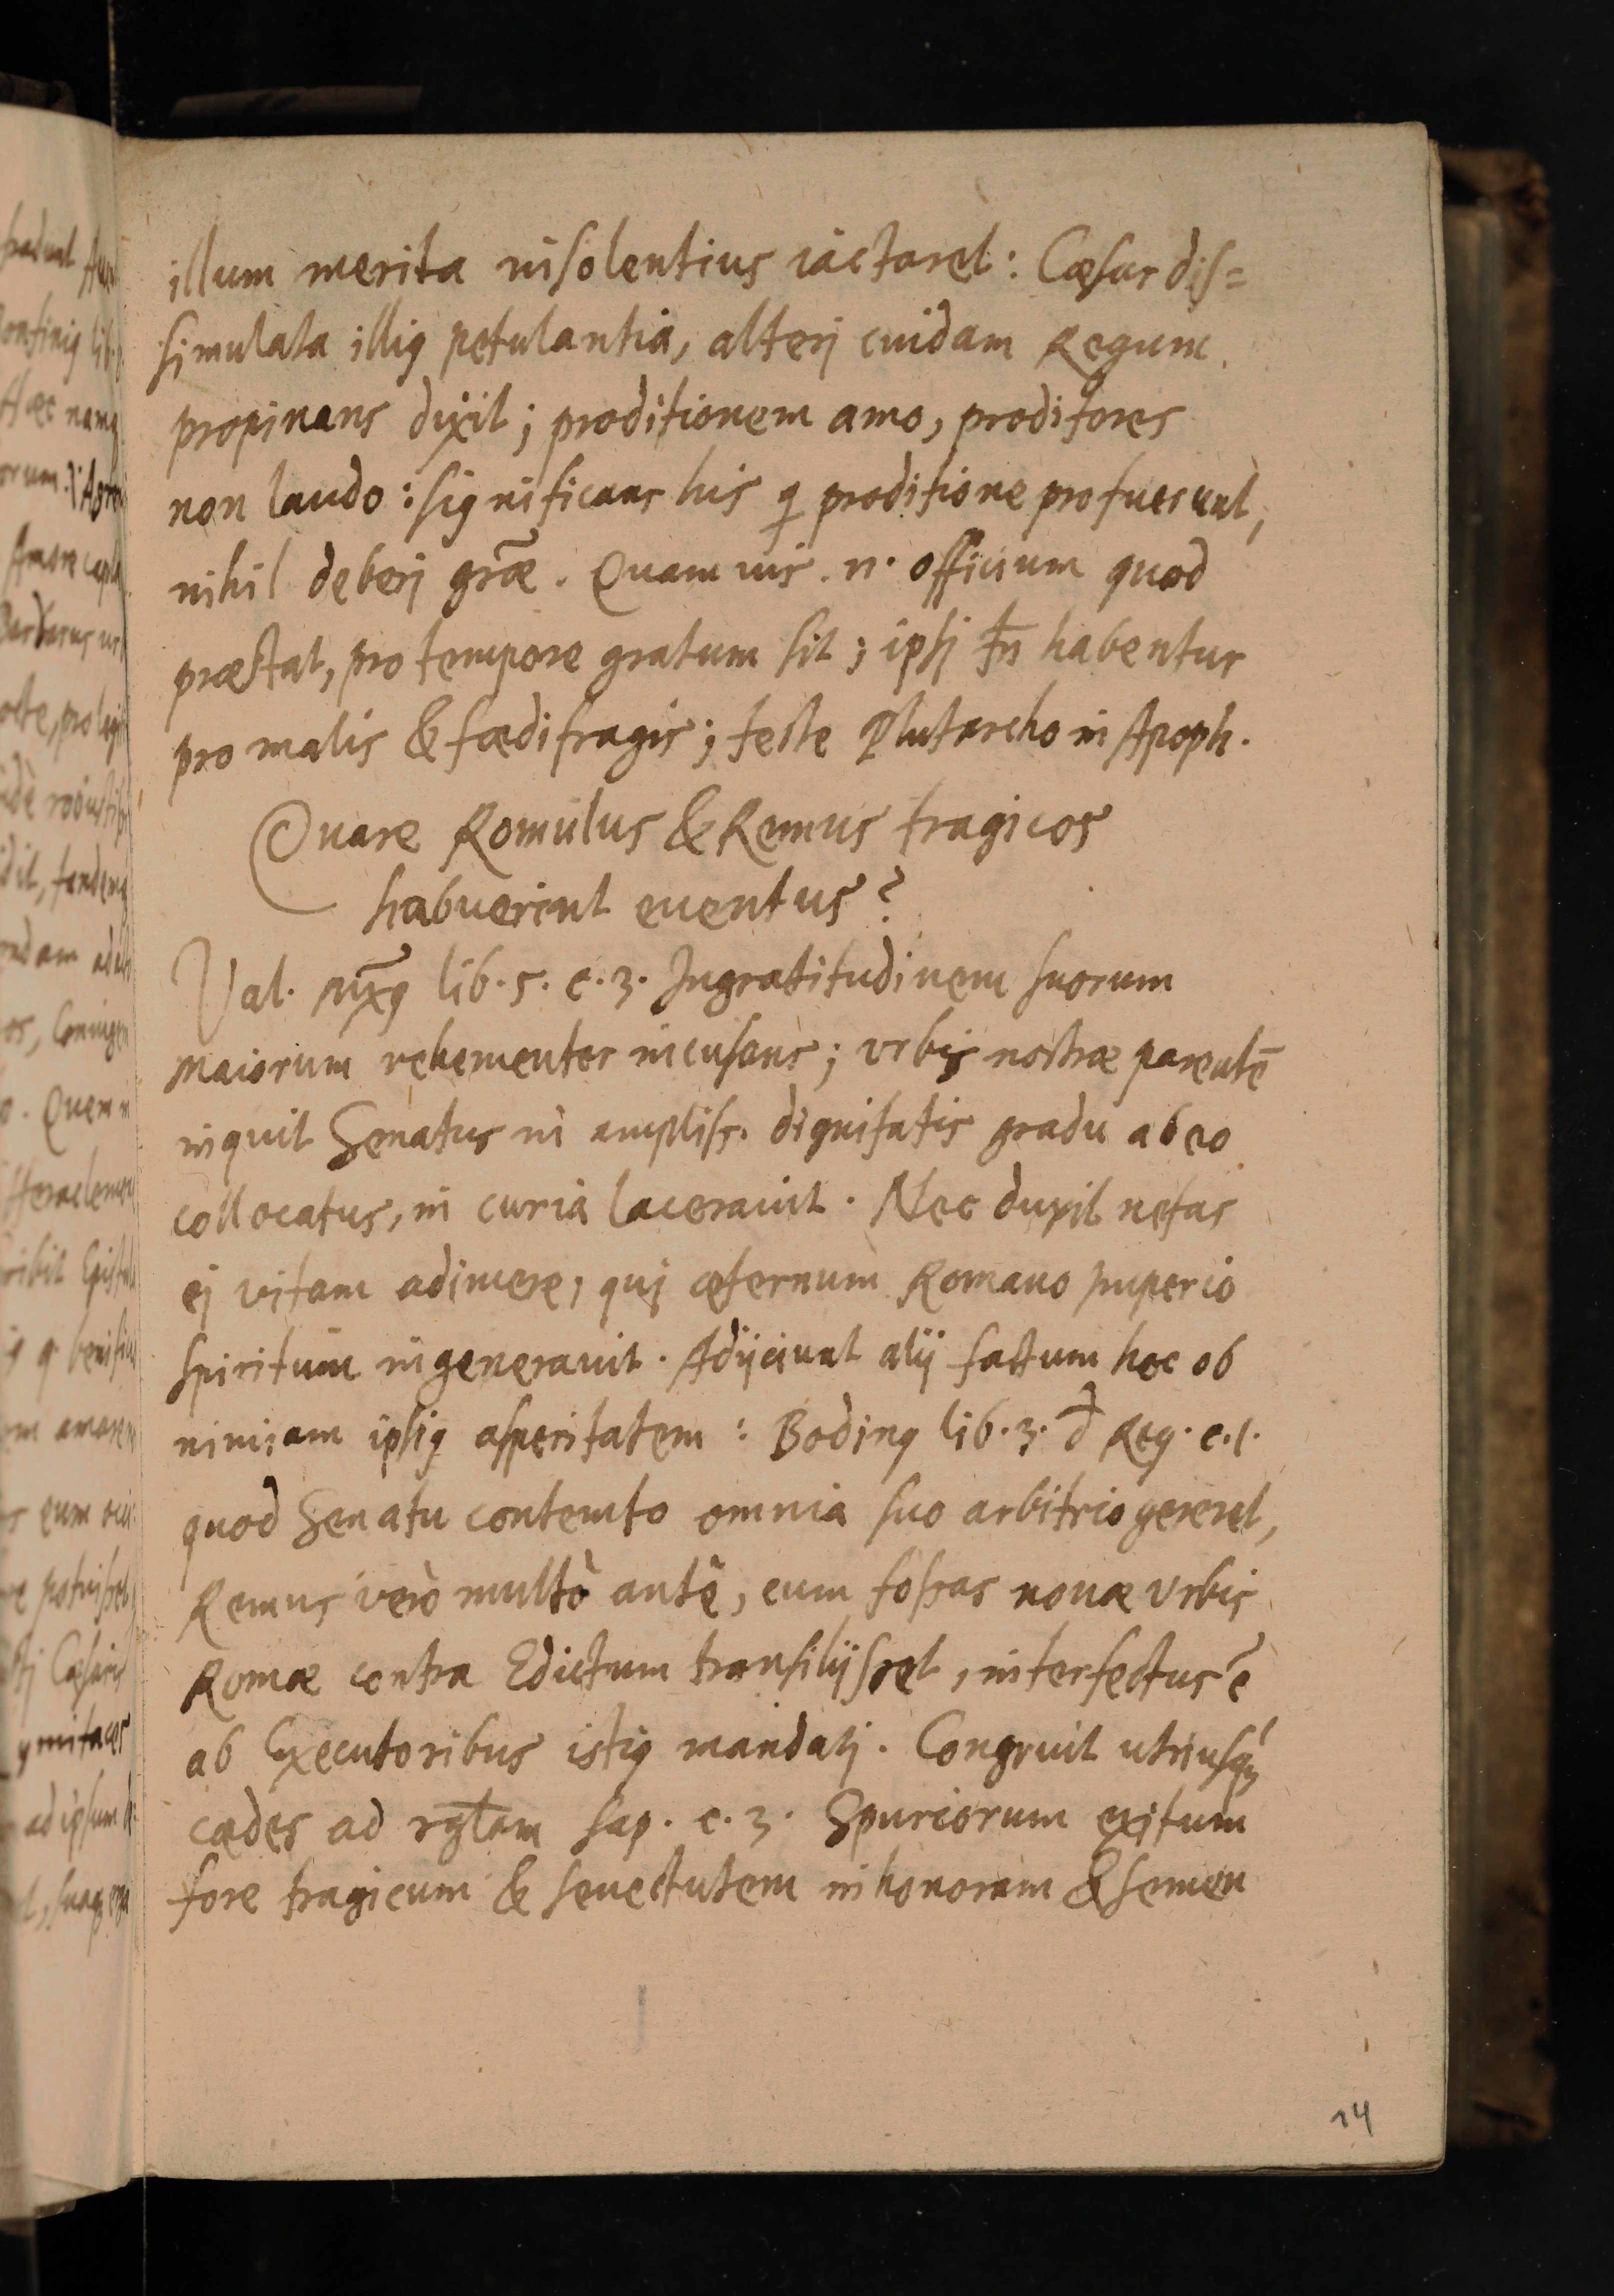 illum merita insolentius iactaret: Cæsar dis=
simulata illiꝰ petulantia, alterj cuidam Regum
propinans dixit; proditionem amo, proditores
non laudo: significans his q proditione profuerunt,
nihil deberj grãe. Quamuis .n. officium quod
præstat, pro tempore gratum sit; ipsj tn̄ habentur
pro malis & fœdifragis; teste Plutarcho in Apoph.
Quare Romulus & Remus tragicos
habuerint euentus?
Val. Mx̄ꝰ lib. 5. c. 3. Ingratitudinem suorum
maiorum vehementer incusans; vrbis nostræ parentē
inquit Senatus in ampliss. dignitatis gradu ab eo
collocatus, in curia lacerauit. Nec duxit nefas
ej vitam adimere, quj æternum Romano Imperio
spiritum ingenerauit. Adijciunt alij factum hoc ob
nimiam ipsiꝰ asperitatem: Bodinꝰ lib. 3. d̄ Reg. c. 1.
quod Senatu contemto omnia suo arbitrio gereret,
Remus verò multò antè, cum fossas nouæ vrbis
Romæ contra Edictum transilijsset, interfectus ē
ab Executoribus istiꝰ mandatj. Congruit utriusqꝫ
cædes ad rgłam Sap. c. 3. Spuriorum exitum
fore tragicum & senectutem inhonoram & semen
14